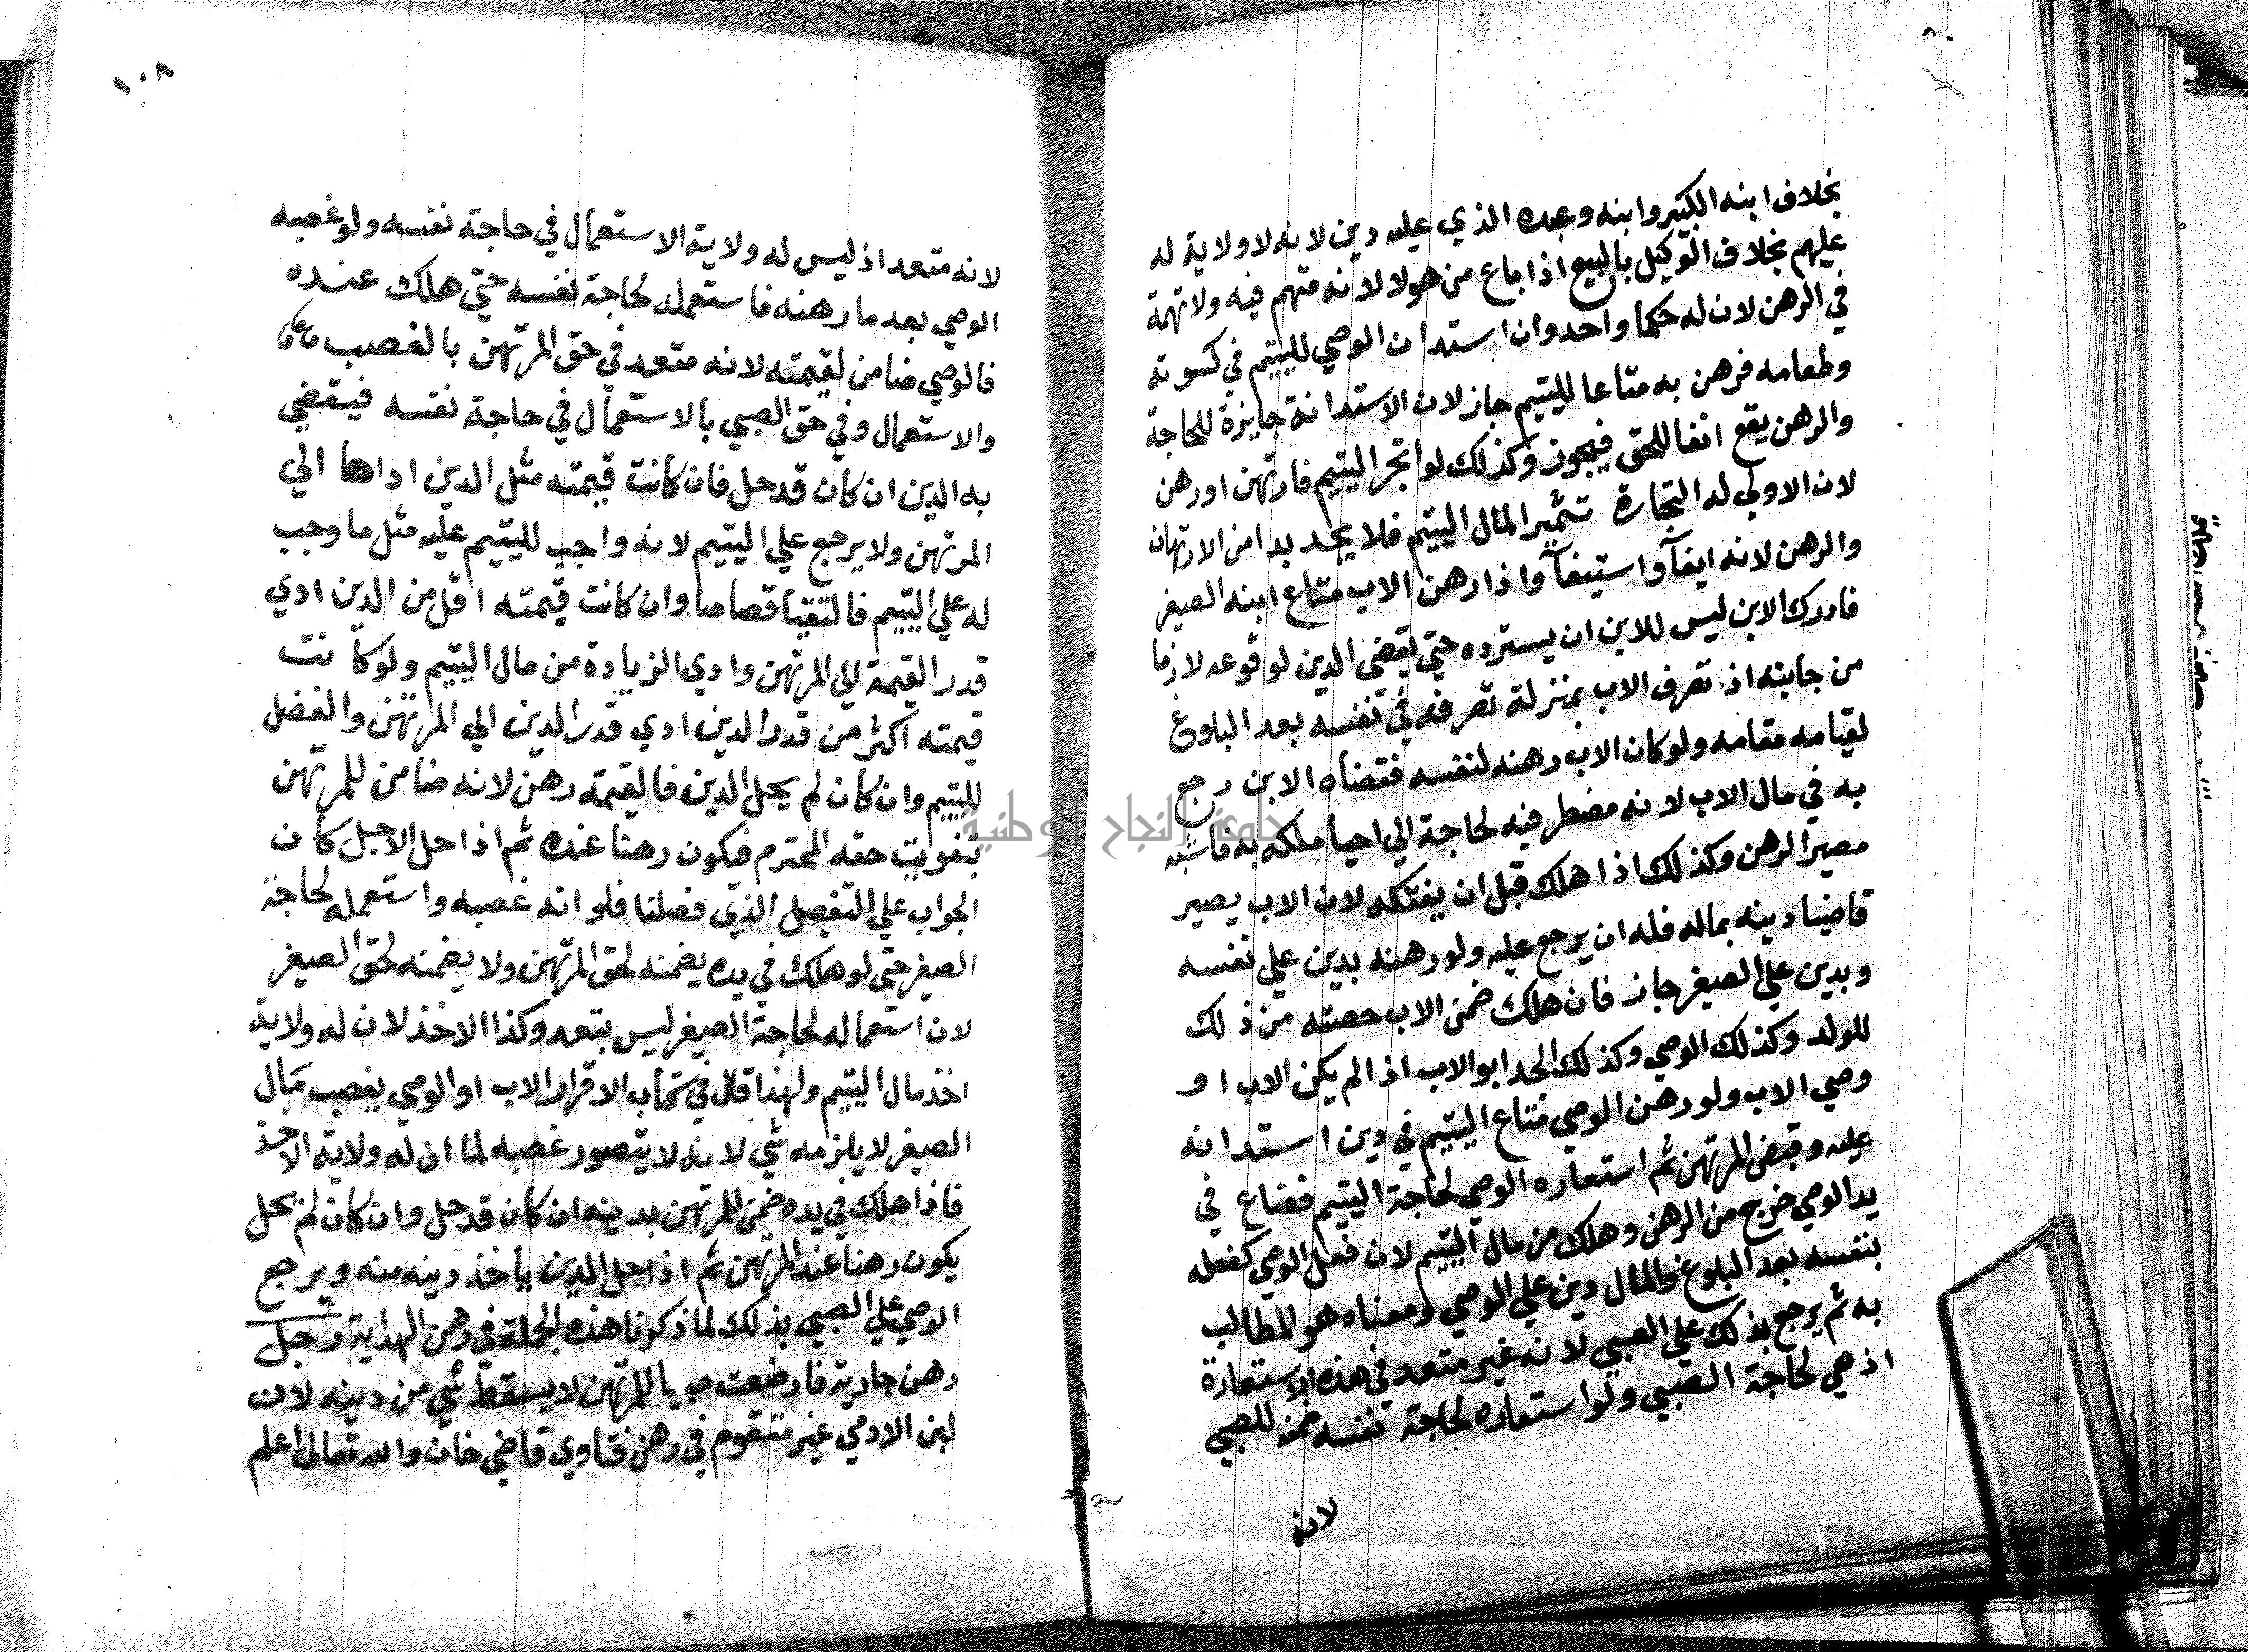 بخلاف ابنه الكبير وابنه وعبده الذي عليه دين لانه لا ولاية له
عليهم بخلاف الوكيل بالبيع اذا باع من هولا لانه متهم فيه ولا تهمة
في الرهن لان له حكما واحد وان استدان الوصي لليتيم في كسوته
وطعامه فرهن به متاعا لليتيم جاز لان الاستدانة جايزة للحاجة
والرهن يقع ايفا للحق فيجوز وكذلك لو اتجر اليتيم فارتهن او رهن
لان الاولي له التجارة تثميرا لمال اليتيم فلا يجد بدا من الارتهان
والرهن لانه ايفآ واستيفآ واذا رهن الاب متاع ابنه الصغير
فادرك الابن ليس للابن ان يسترده حتي يقضي الدين لوقوعه لازما
من جانبه اذ تصرف الاب بمنزلة تصرفه في نفسه بعد البلوغ
لقيامه مقامه ولو كان الاب رهنه لنفسه فقضاه الابن رجع
به في مال الاب لانه مضطر فيه لحاجة الي احيا ملكه به فاشبه
معير الرهن وكذلك اذا هلك قبل ان يفتكه لان الاب يصير
قاضيا دينه بماله فله ان يرجع عليه ولو رهنه بدين علي نفسه
وبدين علي الصغير جاز فان هلك ضمن الاب حصته من ذلك
للولد وكذلك الوصي وكذلك الجد ابو الاب اذا لم يكن الاب او
وصي الاب ولو رهن الوصي متاع اليتيم في دين استدانه
عليه وقبض المرتهن ثم استعاره الوصي لحاجة اليتيم فضاع في
يد الوصي خرج من الرهن وهلك من مال اليتيم لان فعل الوصي كفعله
بنفسه بعد البلوغ والمال دين علي الوصي ومعناه هو المطالب
به ثم يرجع بذلك علي الصبي لانه غير متعد في هذه الاستعارة
اذ هي لحاجة الصبي ولو استعاره لحاجة نفسه ضمنه للصبي
لان
١٠٨
لانه متعد اذ ليس له ولاية الاستعمال في حاجة نفسه ولو غصبه
الوصي بعد ما رهنه فاستعمله لحاجة نفسه حتي هلك عنده
فالوصي ضامن لقيمته لانه متعد في حق المرتهن بالغصب
والاستعمال وفي حق الصبي بالاستعمال في حاجة نفسه فيقضي
به الدين ان كان قد حل فان كانت قيمته مثل الدين اداها الي
المرتهن ولا يرجع علي اليتيم لانه واجب لليتيم عليه مثل ما وجب
له علي اليتيم فالتقيا قصاصا وان كانت قيمته اقل من الدين ادي
قدر القيمة الي المرتهن وادي الزيادة من مال اليتيم ولو كانت
قيمته اكثر من قدر الدين ادي قدر الدين الي المرتهن والفضل
لليتيم وان كان لم يحل الدين فالقيمة رهن لانه ضامن للمرتهن
بتفويت حقه المحترم فيكون رهنا عنده ثم اذا حل الاجل كان
الجواب علي التفصيل الذي فصلنا فلو انه غصبه واستعمله لحاجة
الصغير حتي لو هلك في يده يضمنه لحق المرتهن ولا يضمنه لحق الصغير
لان استعماله لحاجة الصغير ليس بتعد وكذا الاخذ لان له ولاية
اخذ مال اليتيم ولهذا قال في كتاب الاقرار الاب او الوصي يغصب مال
الصغير لا يلزمه شي لانه لا يتصور غصبه لما ان له ولاية الاخذ
فاذا هلك في يده ضمن للمرتهن بدينه ان كان قد حل وان كان لم يحل
يكون رهنا عند المرتهن ثم اذا حل الدين ياخذ دينه منه ويرجع
الوصي علي الصبي بذلك لما ذكرنا هذه الجملة في رهن الهداية رجل
رهن جارية فارضعت صبيا للمرتهن لا يسقط شي من دينه لان
لبن الادمي غير متقوم في رهن فتاوي قاضي خان والله تعالى اعلم
جامعة النجاح الوطنية